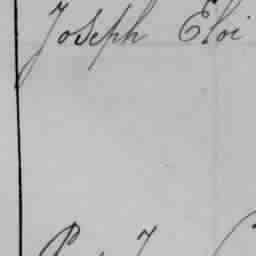 Joseph Eloi